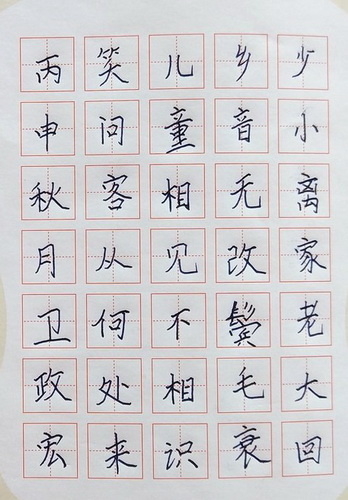 少小离家老大回
乡音无改鬓毛衰
儿童相见不相识
笑问客从何处来
丙申秋月卫政宏